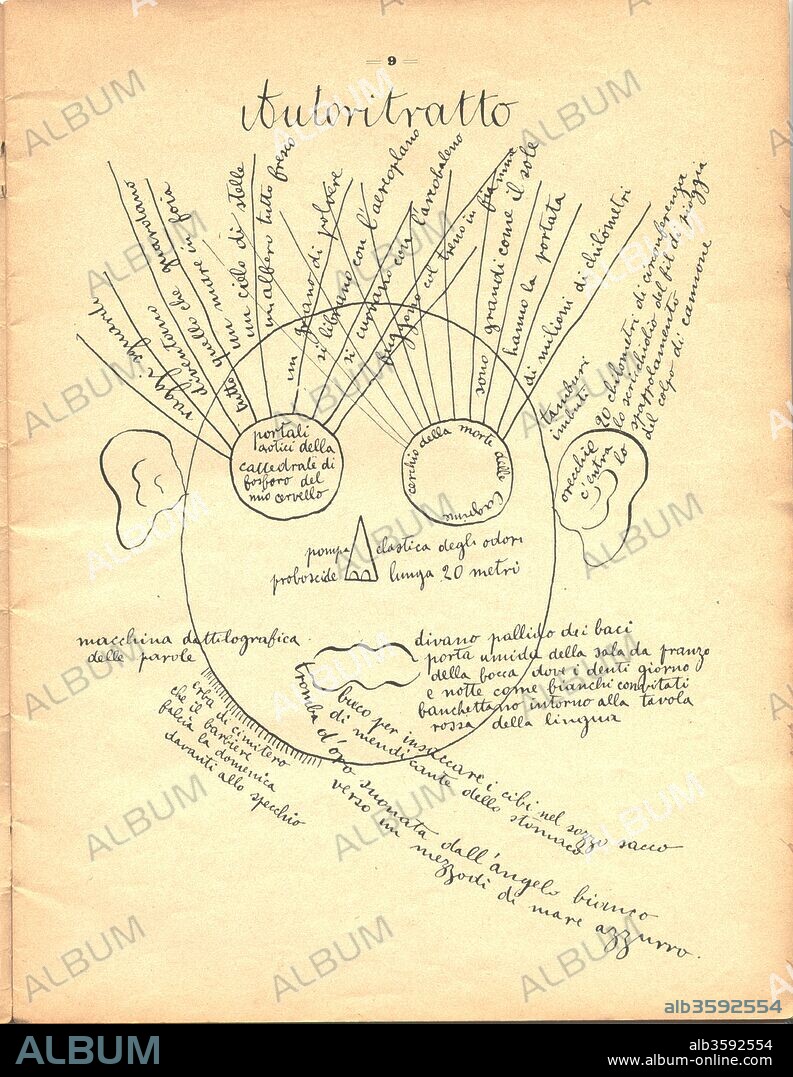 9
Autoritratto
raggi sguardi
diventano
tutto quello che guardiamo
un mare in foia
un cielo di stelle
un albero tutto fresco
un grano di polvere
si librano con l'aereoplano
si curvano con l'arcobaleno
fuggono col treno in fiamme
sono grandi come il sole
hanno la portata
di milioni di chilometri
tamburi
imbuti
20 chilometri di circonferenza
lo scricchiolio del fil di pioggia
spappolamento
del colpo di cannone
orecchio
c'entra
lo
portali
aotici della
cattedrale di
fosforo del
mio cervello
cerchio della morte delle lagrime
pompa elastica degli odori
proboscide lunga 20 metri
macchina dattilografica
delle parole
divano pallido dei baci
porta umida della sala da pranzo
della bocca dove i denti giorno
e notte come bianchi convitati
banchettano intorno alla tavola
rossa della lingua
erba di cimitero
che il barbiere
falcia la domenica
davanti allo specchio
buco per insaccare i cibi nel sozzo sacco
di mendicante dello stomaco
tromba d'oro suonata dall'angelo bianco
verso un mezzodì di mare azzurro.
ALBUM
alb3592554
ALBUM
alb3592554
www.album-online.com